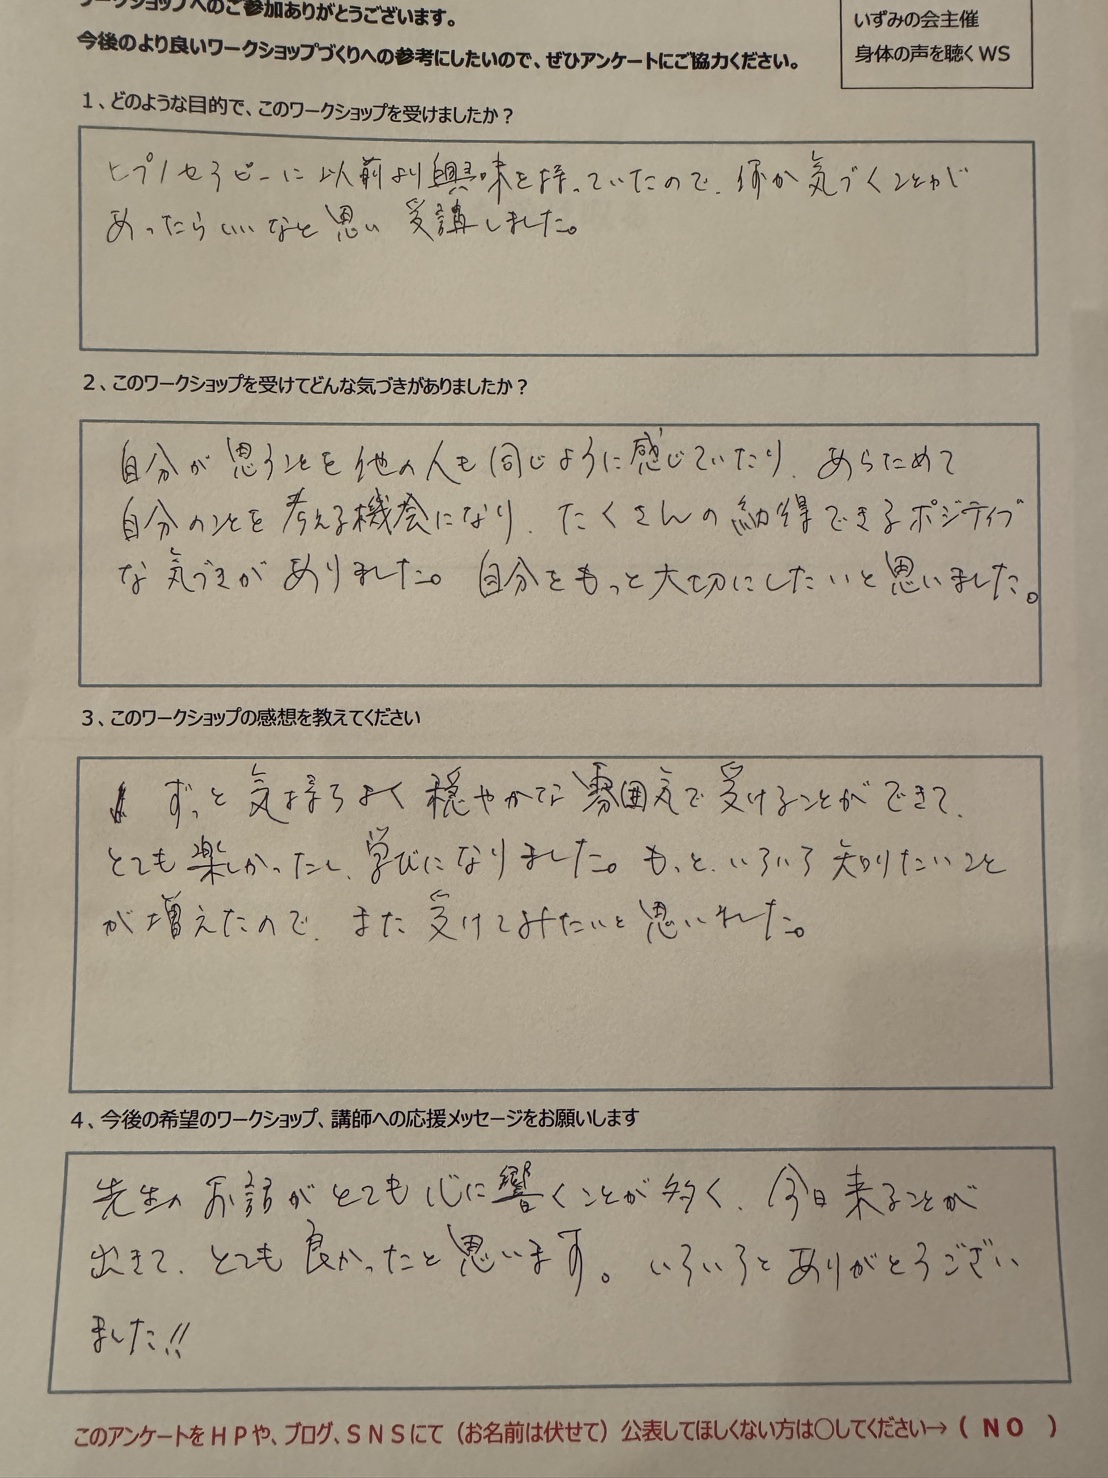 ワークショップへのご参加ありがとうございます。
今後のより良いワークショップづくりへの参考にしたいので、ぜひアンケートにご協力ください。
いずみの会主催
身体の声を聴くWS
1、どのような目的で、このワークショップを受けましたか？
ヒプノセラピーに以前より興味を持っていたので、何か気づくことが
あったらいいなと思い受講しました。
2、このワークショップを受けてどんな気づきがありましたか？
自分が思うことを他の人も同じように感じていたり、あらためて
自分のことを考える機会になり、たくさんの納得できるポジティブ
な気づきがありました。自分をもっと大切にしたいと思いました。
3、このワークショップの感想を教えてください
ずっと気持ちよく穏やかな雰囲気で受けることができて、
とても楽しかったし、学びになりました。もっと、いろいろ知りたいこと
が増えたので、また受けてみたいと思いました。
4、今後の希望のワークショップ、講師への応援メッセージをお願いします
先生のお話がとても心に響くことが多く、今日来ることが
出きて、とても良かったと思います。いろいろとありがとうござい
ました!!
このアンケートをHPや、ブログ、SNSにて（お名前は伏せて）公表してほしくない方は○してください→（ NO ）